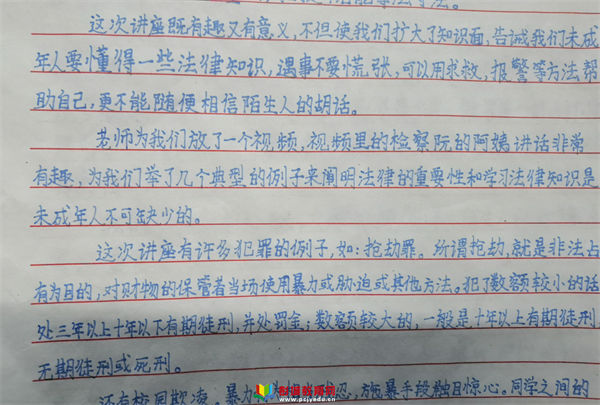 这次讲座既有趣又有意义，不但使我们扩大了知识面，告诫我们未成
年人要懂得一些法律知识，遇事不要慌张，可以用求救，报警等方法帮
助自己，更不能随便相信陌生人的胡话。
老师为我们放了一个视频，视频里的检察院的阿姨讲话非常
有趣，为我们举了几个典型的例子来阐明法律的重要性和学习法律知识是
未成年人不可缺少的。
这次讲座有许多犯罪的例子，如：抢劫罪。所谓抢劫，就是非法占
有为目的，对财物的保管者当场使用暴力或胁迫或其他方法。犯了数额较小的话
处三年以上十年以下有期徒刑，并处罚金；数额较大的，一般是十年以上有期徒刑，
无期徒刑或死刑。
还有校园欺凌。暴力 施暴手段触目惊心。同学之间的